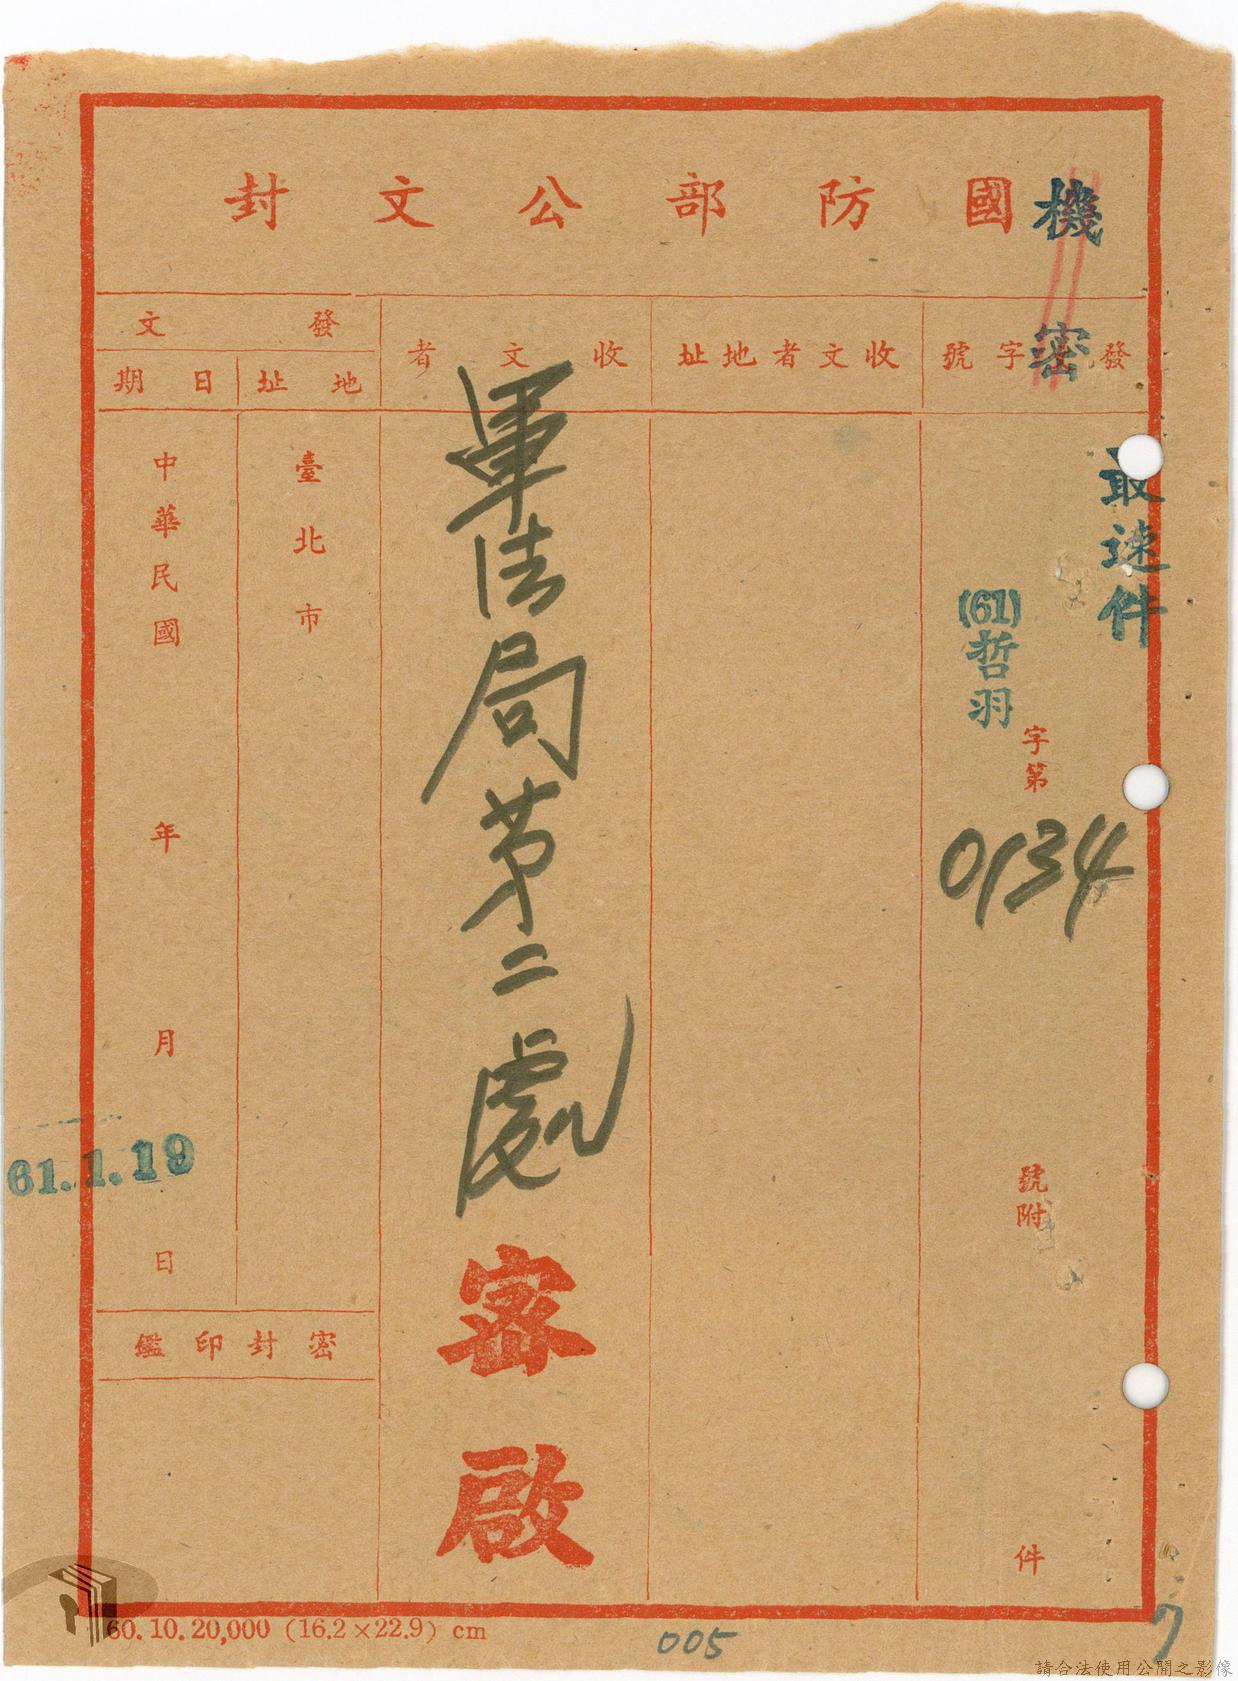 國防部公文封
機密
發
字號
收文者地址
收文者
發文
地址
日期
最速件
(61)哲羽
字第
0134
號附
件
軍法局第二處
密啟
臺北市
中華民國
年
月
61.1.19
日
密封印鑑
60.10.20,000 (16.2×22.9) cm
005
7
請合法使用公開之影像